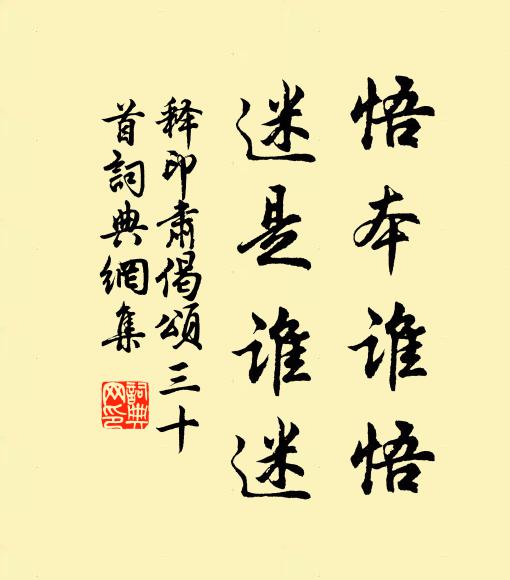 悟本谁悟
迷是谁迷
释印肃偈颂三十
首詞典網集
詞典
网印